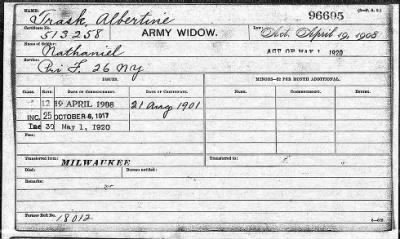 NAME: 96605 (3—P. A. C.)
Trask, Albertine
Certificate No. ARMY WIDOW. Law:
513258 Act. April 19, 1908
Name of Soldier: AGE OF MAY 1, 1920
Nathaniel
Service:
Pri F. 26 NY
ISSUES. MINORS—$2 PER MONTH ADDITIONAL.
CLASS. RATE. DATE OF COMMENCEMENT. DATE OF CERTIFICATE.
12 19 APRIL 1908 21 Aug 1901
INC. 25 OCTOBER 6, 1917
Inc 30 May 1, 1920
Fees:
Transferred from: MILWAUKEE Transferred to:
Died: Bureau notified:
Remarks:
Former Roll No. 18012